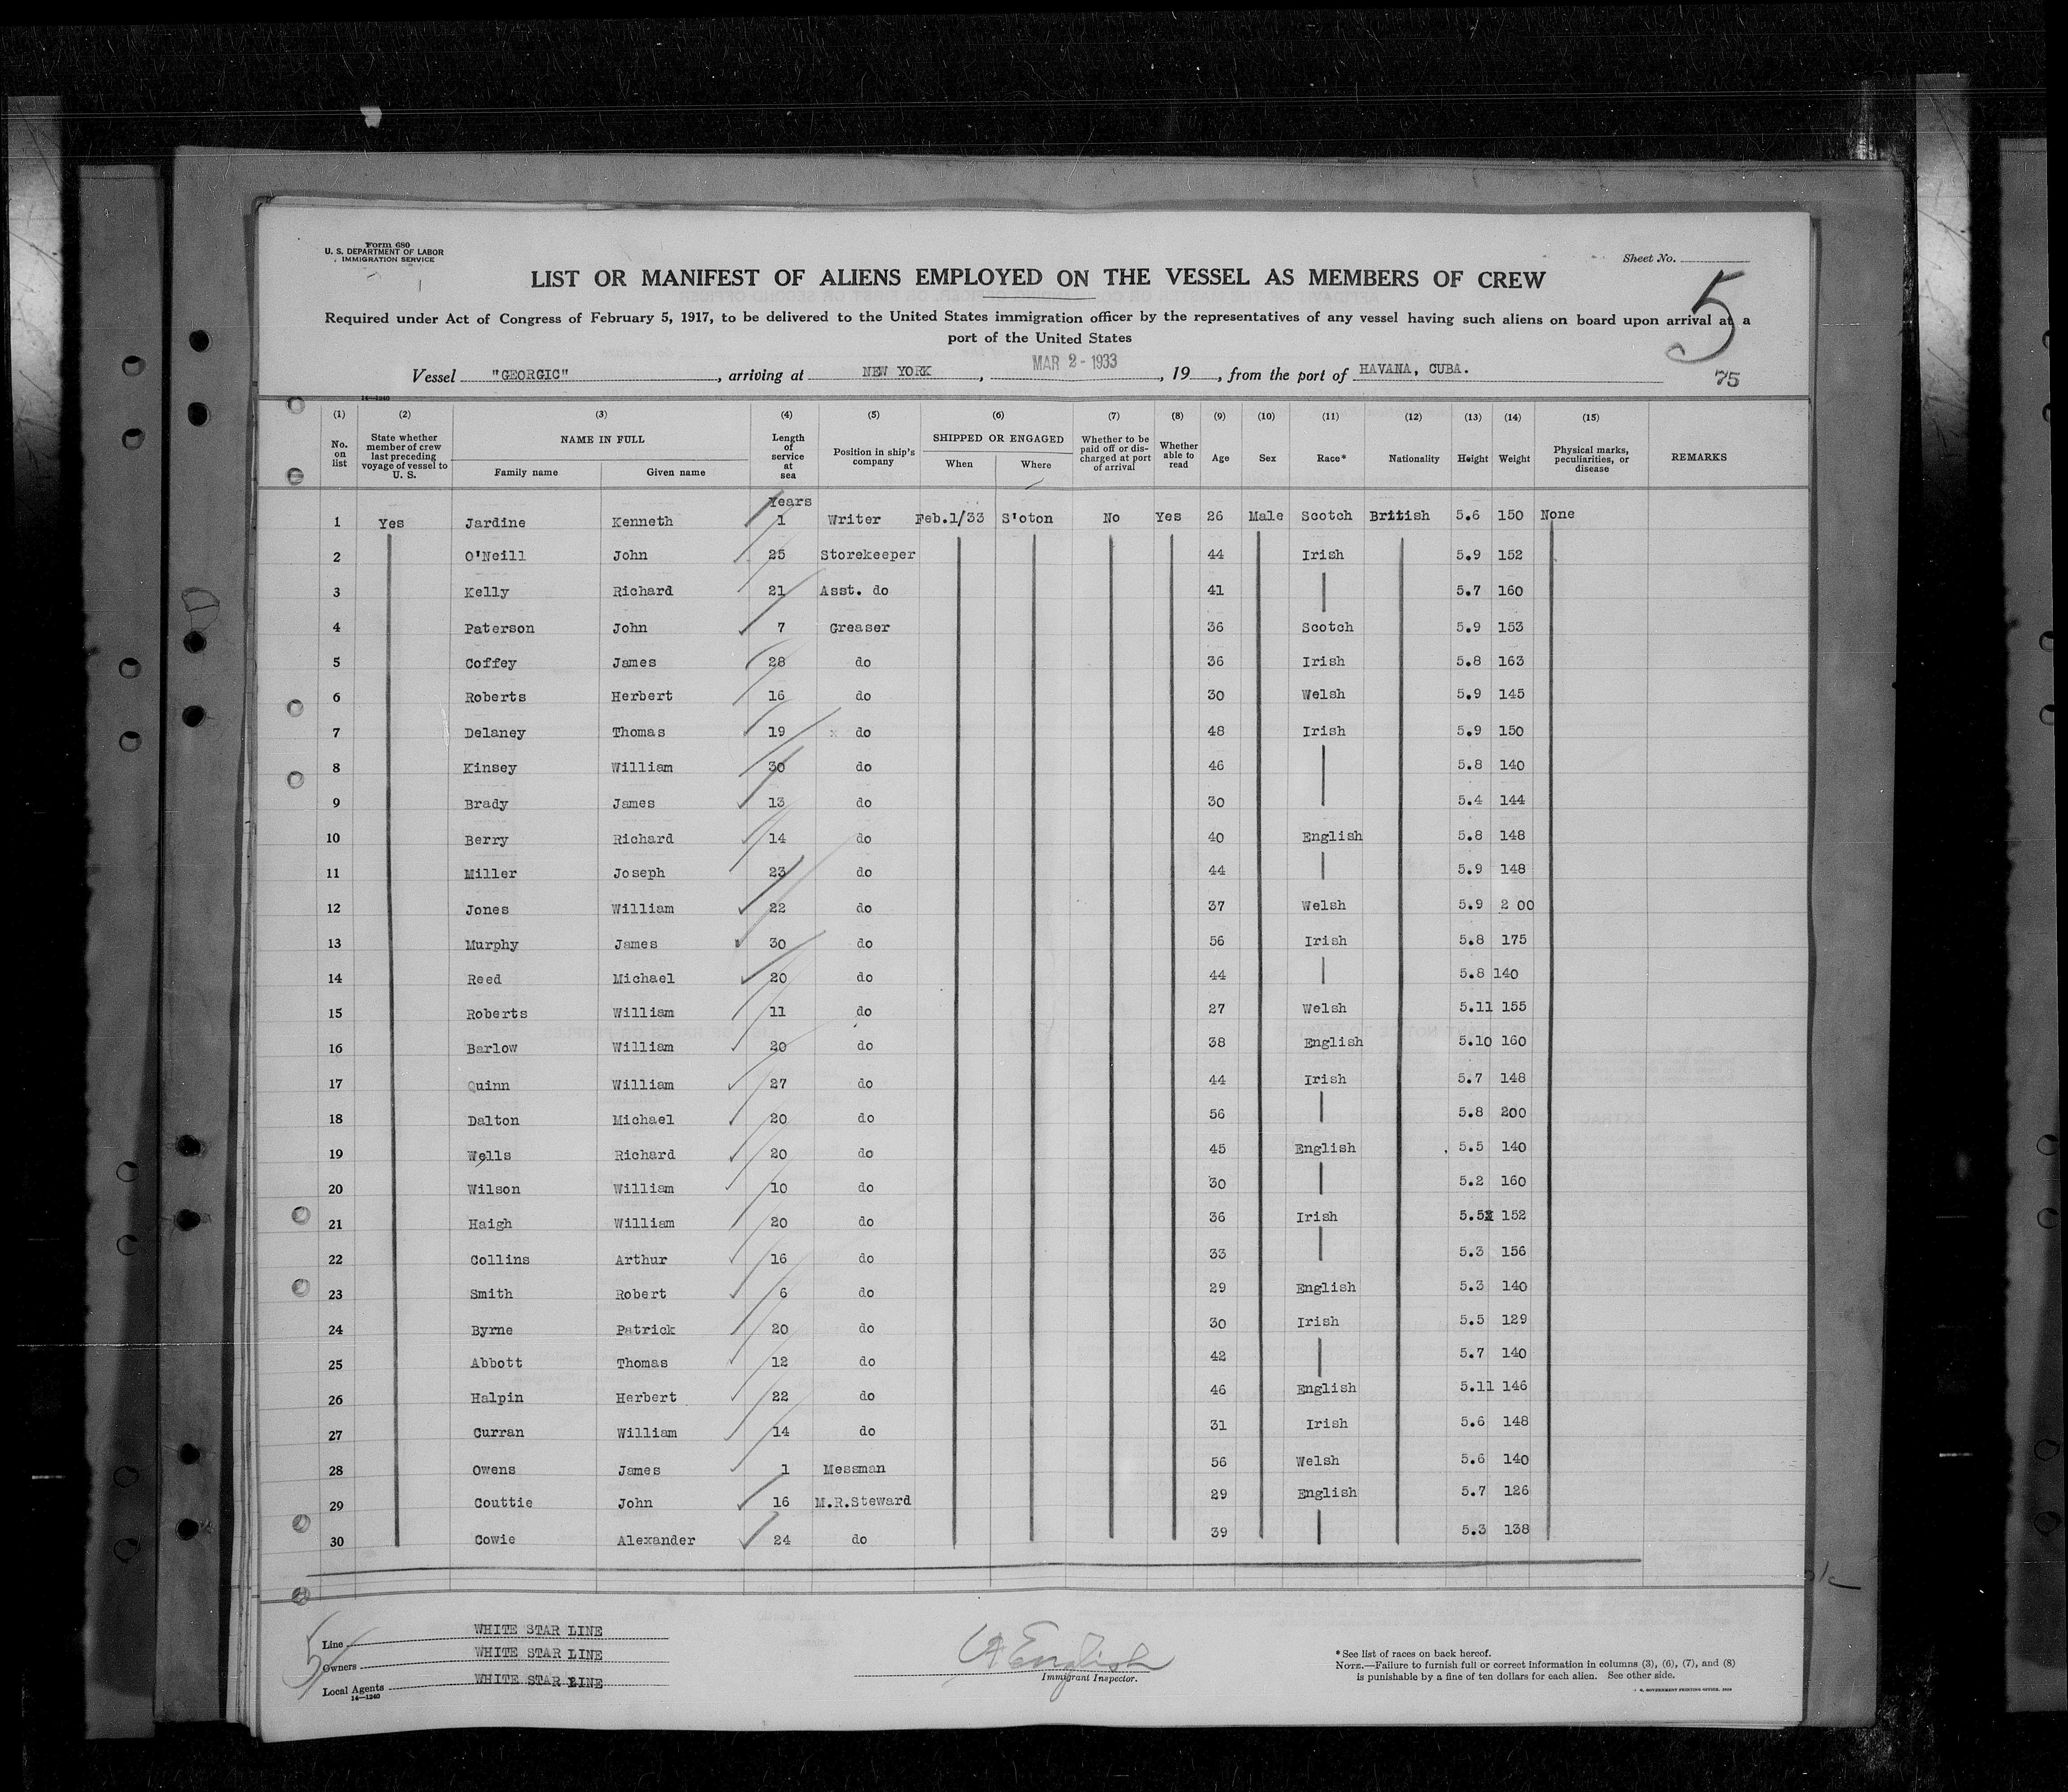 Form 680
U. S. DEPARTMENT OF LABOR
IMMIGRATION SERVICE
Sheet No.
5
LIST OR MANIFEST OF ALIENS EMPLOYED ON THE VESSEL AS MEMBERS OF CREW
Required under Act of Congress of February 5, 1917, to be delivered to the United States immigration officer by the representatives of any vessel having such aliens on board upon arrival at a
port of the United States
Vessel "GEORGIC", arriving at NEW YORK, MAR 2 - 1933, 19 , from the port of HAVANA, CUBA.
75
14—1240
(1) (2) (3) (4) (5) (6) (7) (8) (9) (10) (11) (12) (13) (14) (15)
No. on list State whether member of crew last preceding voyage of vessel to U. S. NAME IN FULL Family name Given name Length of service at sea Position in ship's company SHIPPED OR ENGAGED When Where Whether to be paid off or discharged at port of arrival Whether able to read Age Sex Race* Nationality Height Weight Physical marks, peculiarities, or disease REMARKS
Years
1 Yes Jardine Kenneth 1 Writer Feb.1/33 S'oton No Yes 26 Male Scotch British 5.6 150 None
2 O'Neill John 25 Storekeeper 44 Irish 5.9 152
3 Kelly Richard 21 Asst. do 41 5.7 160
4 Paterson John 7 Greaser 36 Scotch 5.9 153
5 Coffey James 28 do 36 Irish 5.8 163
6 Roberts Herbert 16 do 30 Welsh 5.9 145
7 Delaney Thomas 19 x do 48 Irish 5.9 150
8 Kinsey William 30 do 46 5.8 140
9 Brady James 13 do 30 5.4 144
10 Berry Richard 14 do 40 English 5.8 148
11 Miller Joseph 23 do 44 5.9 148
12 Jones William 22 do 37 Welsh 5.9 2 00
13 Murphy James 30 do 56 Irish 5.8 175
14 Reed Michael 20 do 44 5.8 140
15 Roberts William 11 do 27 Welsh 5.11 155
16 Barlow William 20 do 38 English 5.10 160
17 Quinn William 27 do 44 Irish 5.7 148
18 Dalton Michael 20 do 56 5.8 200
19 Wells Richard 20 do 45 English 5.5 140
20 Wilson William 10 do 30 5.2 160
21 Haigh William 20 do 36 Irish 5.5 152
22 Collins Arthur 16 do 33 5.3 156
23 Smith Robert 6 do 29 English 5.3 140
24 Byrne Patrick 20 do 30 Irish 5.5 129
25 Abbott Thomas 12 do 42 5.7 140
26 Halpin Herbert 22 do 46 English 5.11 146
27 Curran William 14 do 31 Irish 5.6 148
28 Owens James 1 Messman 56 Welsh 5.6 140
29 Couttie John 16 M.R.Steward 29 English 5.7 126
30 Cowie Alexander 24 do 39 5.3 138
Line WHITE STAR LINE
Owners WHITE STAR LINE
Local Agents WHITE STAR LINE
14—1240
English
Immigrant Inspector.
* See list of races on back hereof.
NOTE.—Failure to furnish full or correct information in columns (3), (6), (7), and (8)
is punishable by a fine of ten dollars for each alien. See other side.
GOVERNMENT PRINTING OFFICE